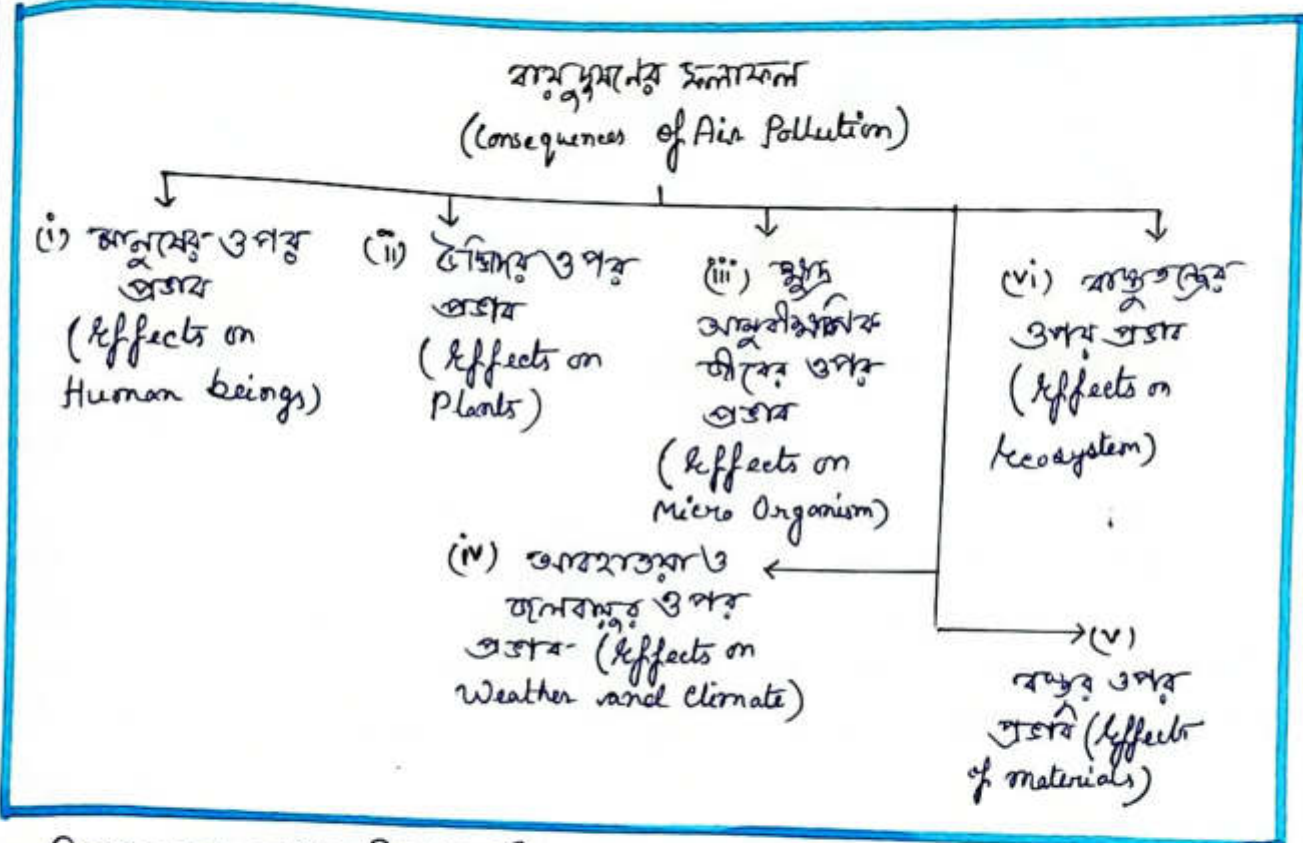 বায়ুদূষণের ফলাফল
(Consequences of Air Pollution)
(i) মানুষের ওপর
প্রভাব
(Effects on
Human beings)
(ii) উদ্ভিদের ওপর
প্রভাব
(Effects on
Plants)
(iii) ক্ষুদ্র
আণুবীক্ষণিক
জীবের ওপর
প্রভাব
(Effects on
Micro Organism)
(vi) বাস্তুতন্ত্রের
ওপর প্রভাব
(Effects on
Ecosystem)
(iv) আবহাওয়া ও
জলবায়ুর ওপর
প্রভাব- (Effects on
Weather and Climate)
(v)
বস্তুর ওপর
প্রভাব (Effects
of materials)